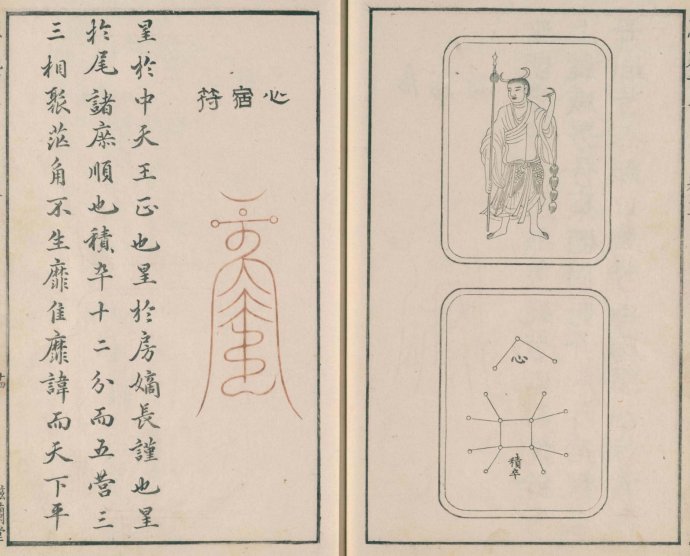 心
積卒
心宿符
星於中天王正也星於房嫡長謹也星
於尾諸庶順也積卒十二分而五營三
三相聚茫角不生靡隹靡諱而天下平
十四